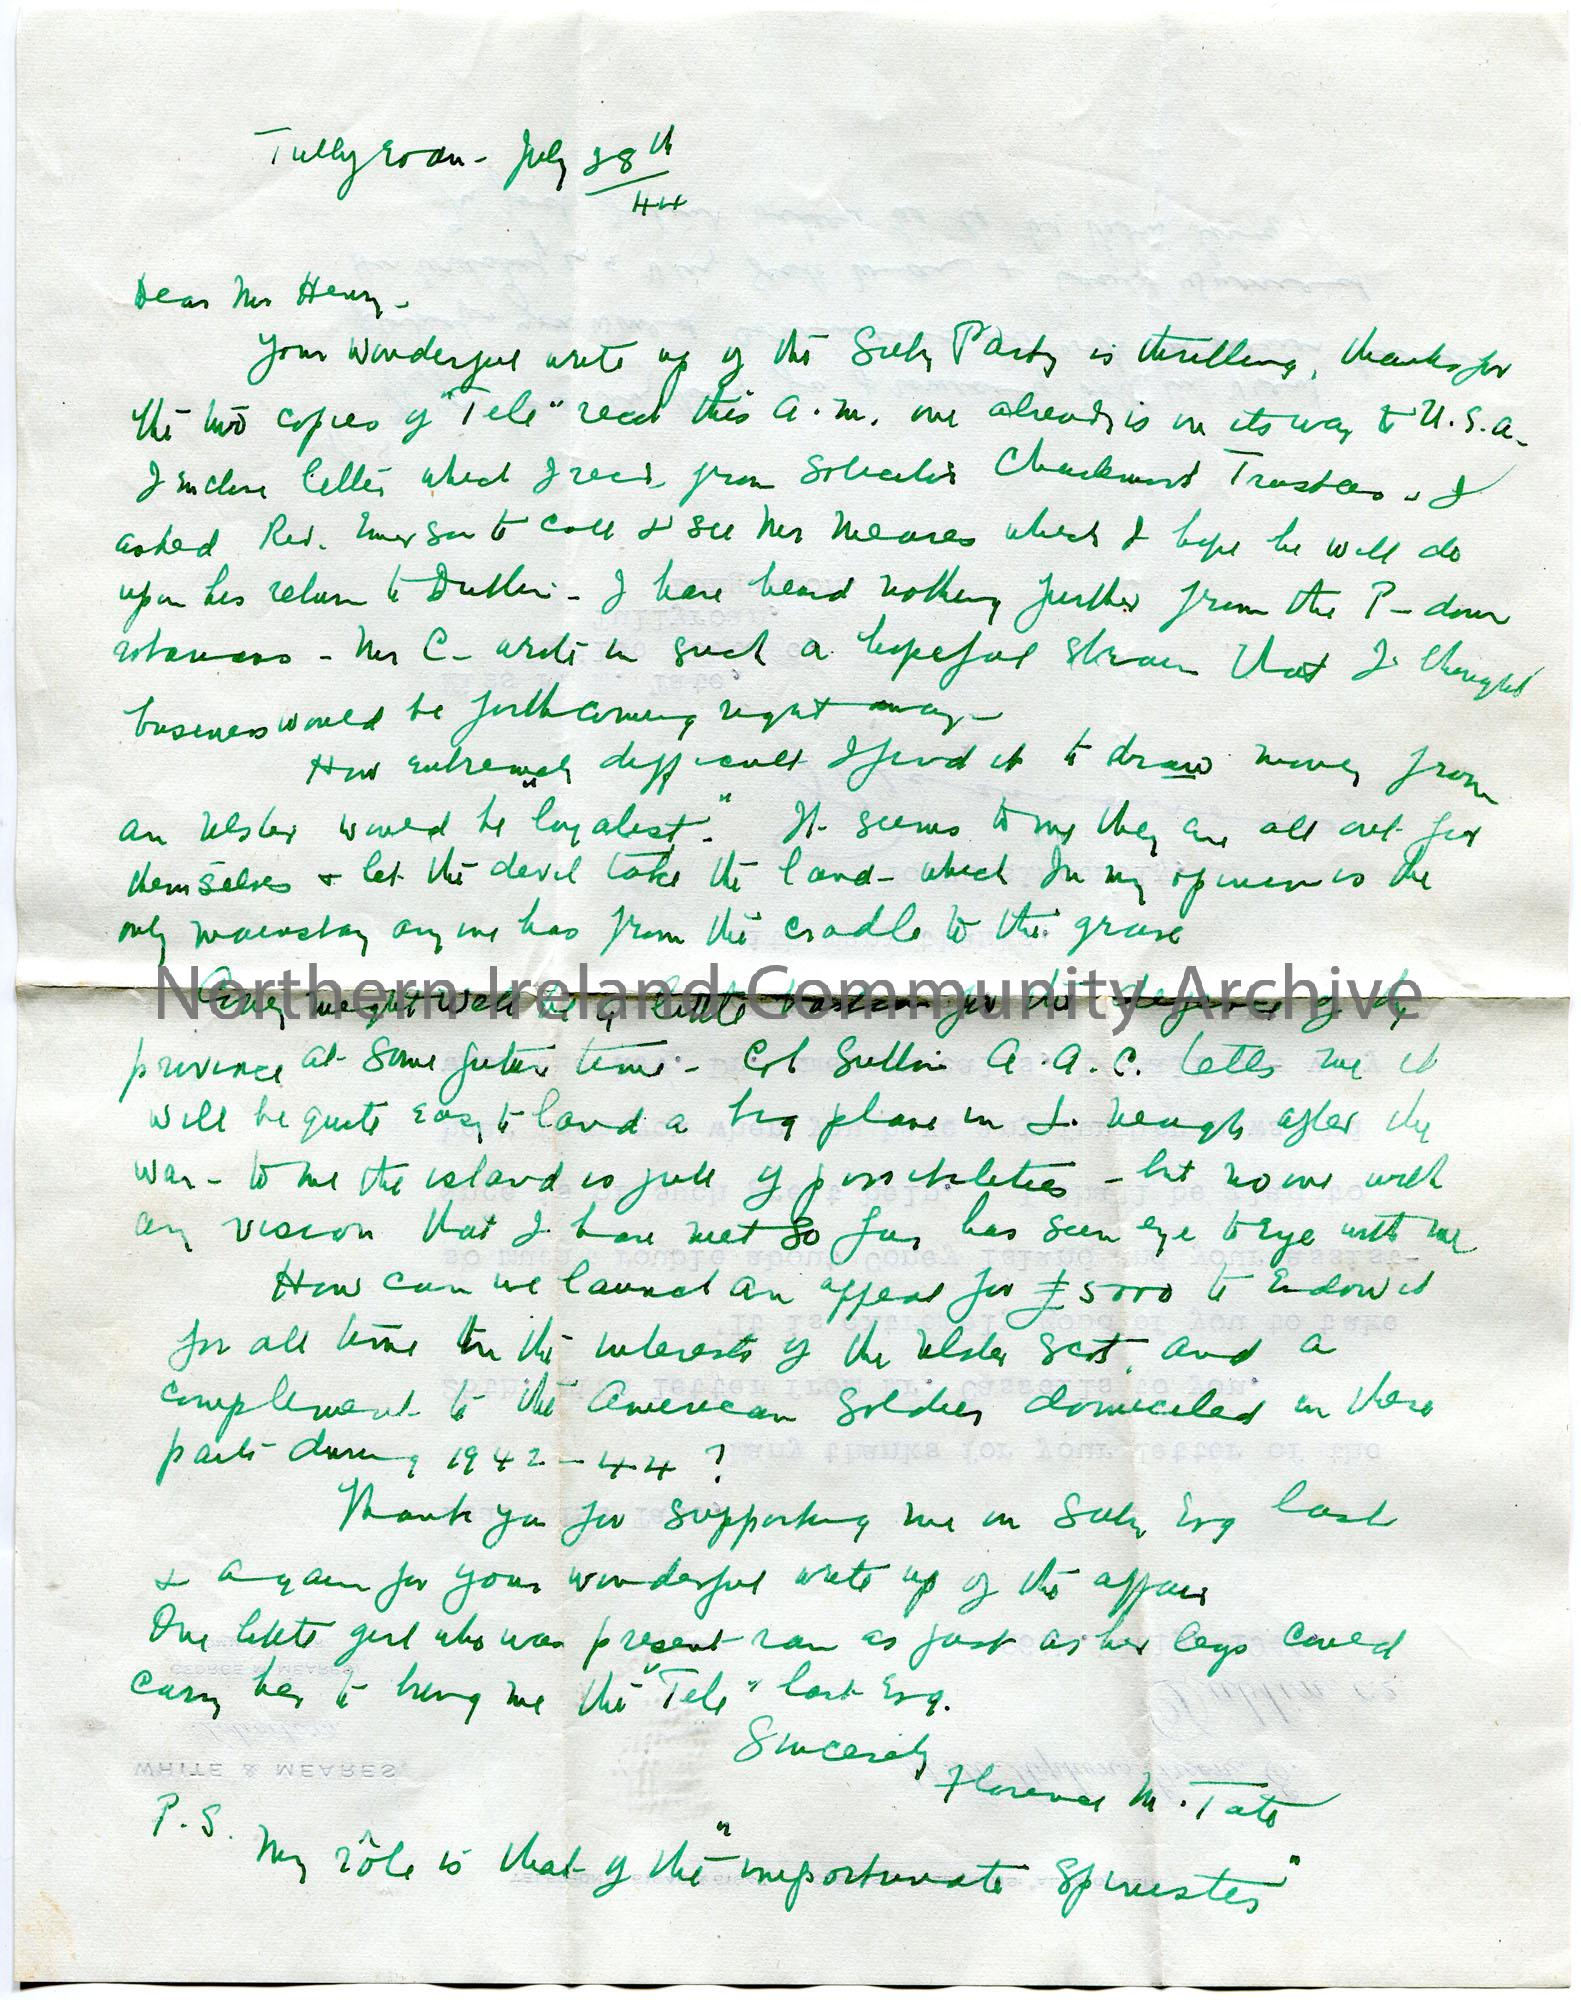 Tullyroan - July 28th
/44
Dear Mr Henry -
Your wonderful write up of the Party is thrilling, thanks for
the two copies of "Tele" recd this a.m. one already is on its way to U.S.A.
I enclose letter which I recd. from Solicitor Charlemont Trustees - I
asked Rev. Emerson to call & see Mr Meares which I hope he will do
upon his return to Dublin - I have heard nothing further from the P-down
rotarians - Mr C- wrote in such a hopeful strain that I thought
business would be forthcoming right away -
How extremely difficult I find it to draw money from
an Ulster would be "loyalist". It seems to me they are all out for
themselves & let the devil take the land - which In my opinion is the
only mainstay anyone has from the cradle to the grave
Coney might well be a little bastion for the defence of the
province at some future time - Col A.A.C. tells me it
will be quite easy to land a big plane in L. Neagh after the
war - to me the island is full of possibilities - but no one with
any vision that I have met so far has seen eye to eye with me
How can we launch an appeal for £5000 to Endow it
for all time in the interests of the Ulster Scot, and a
complement to the American Soldier domiciled in these
parts during 1942-44?
Thank you for supporting me on Evg last
& again for your wonderful write up of the affair
One little girl who was present ran as fast as her legs could
carry her to bring me the "Tele" last Evg.
Sincerely
Florence M. Tate
P.S. My rôle is that of the "importunate Spinster"
Northern Ireland Community Archive
WHITE & MEARES